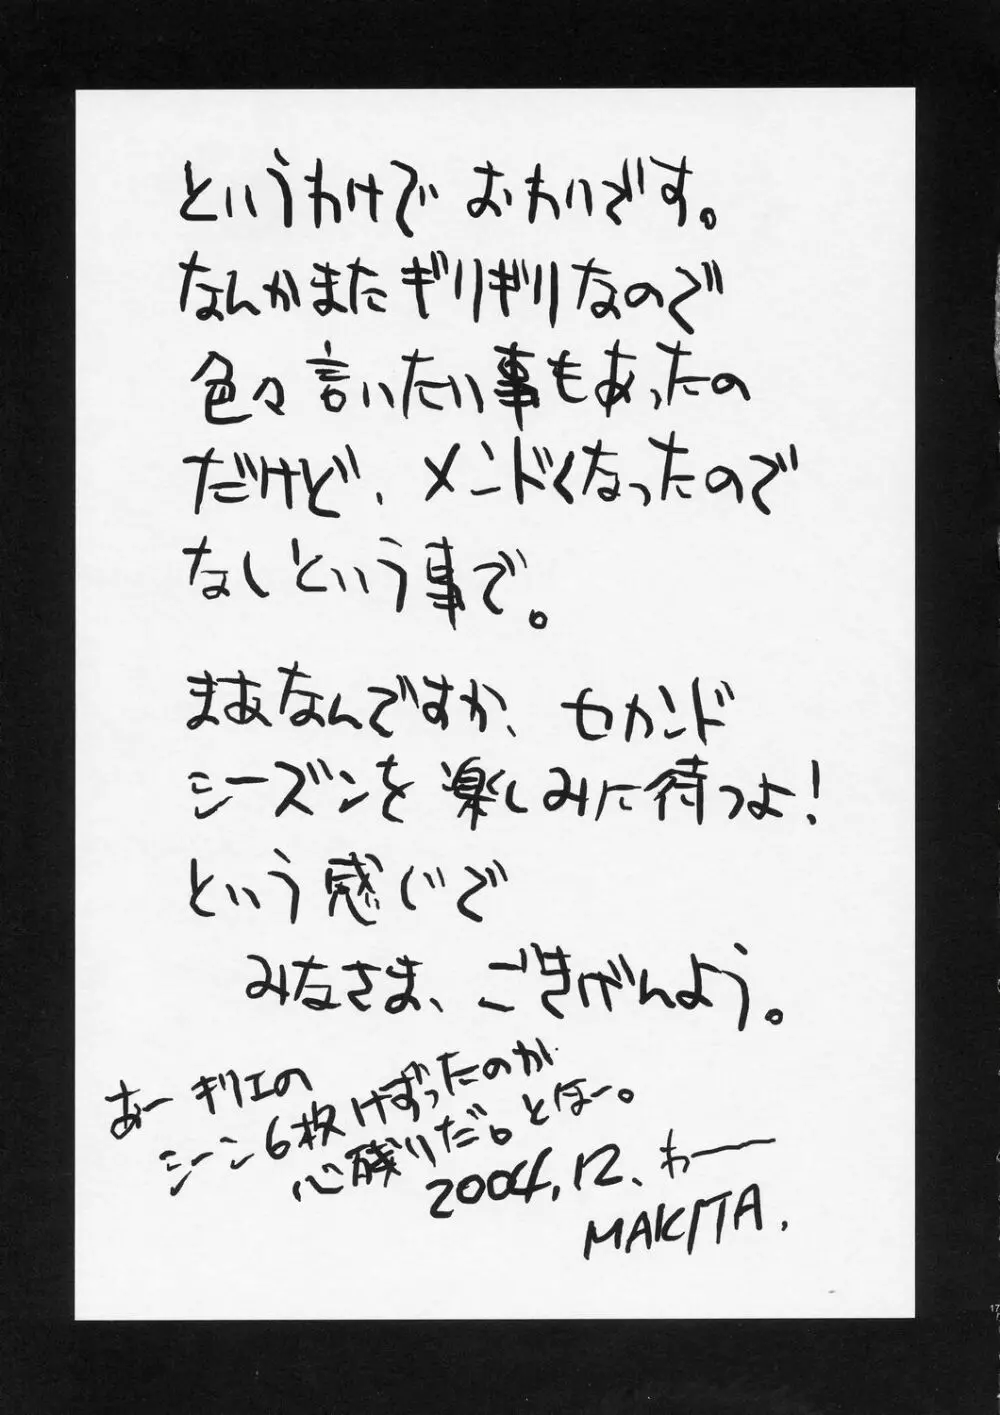 というわけで おわりです。
なんかまたギリギリなので
色々言いたい事もあったの
だけど、メンドくなったので
なしという事で。
まあなんですか、セカンド
シーズンを楽しみに待つよ！
という感じで
みなさま、ごきげんよう。
あー キリエの
シーン6枚けずったのが
心残りだ。とほー。
2004.12. わー
MAKITA.
17